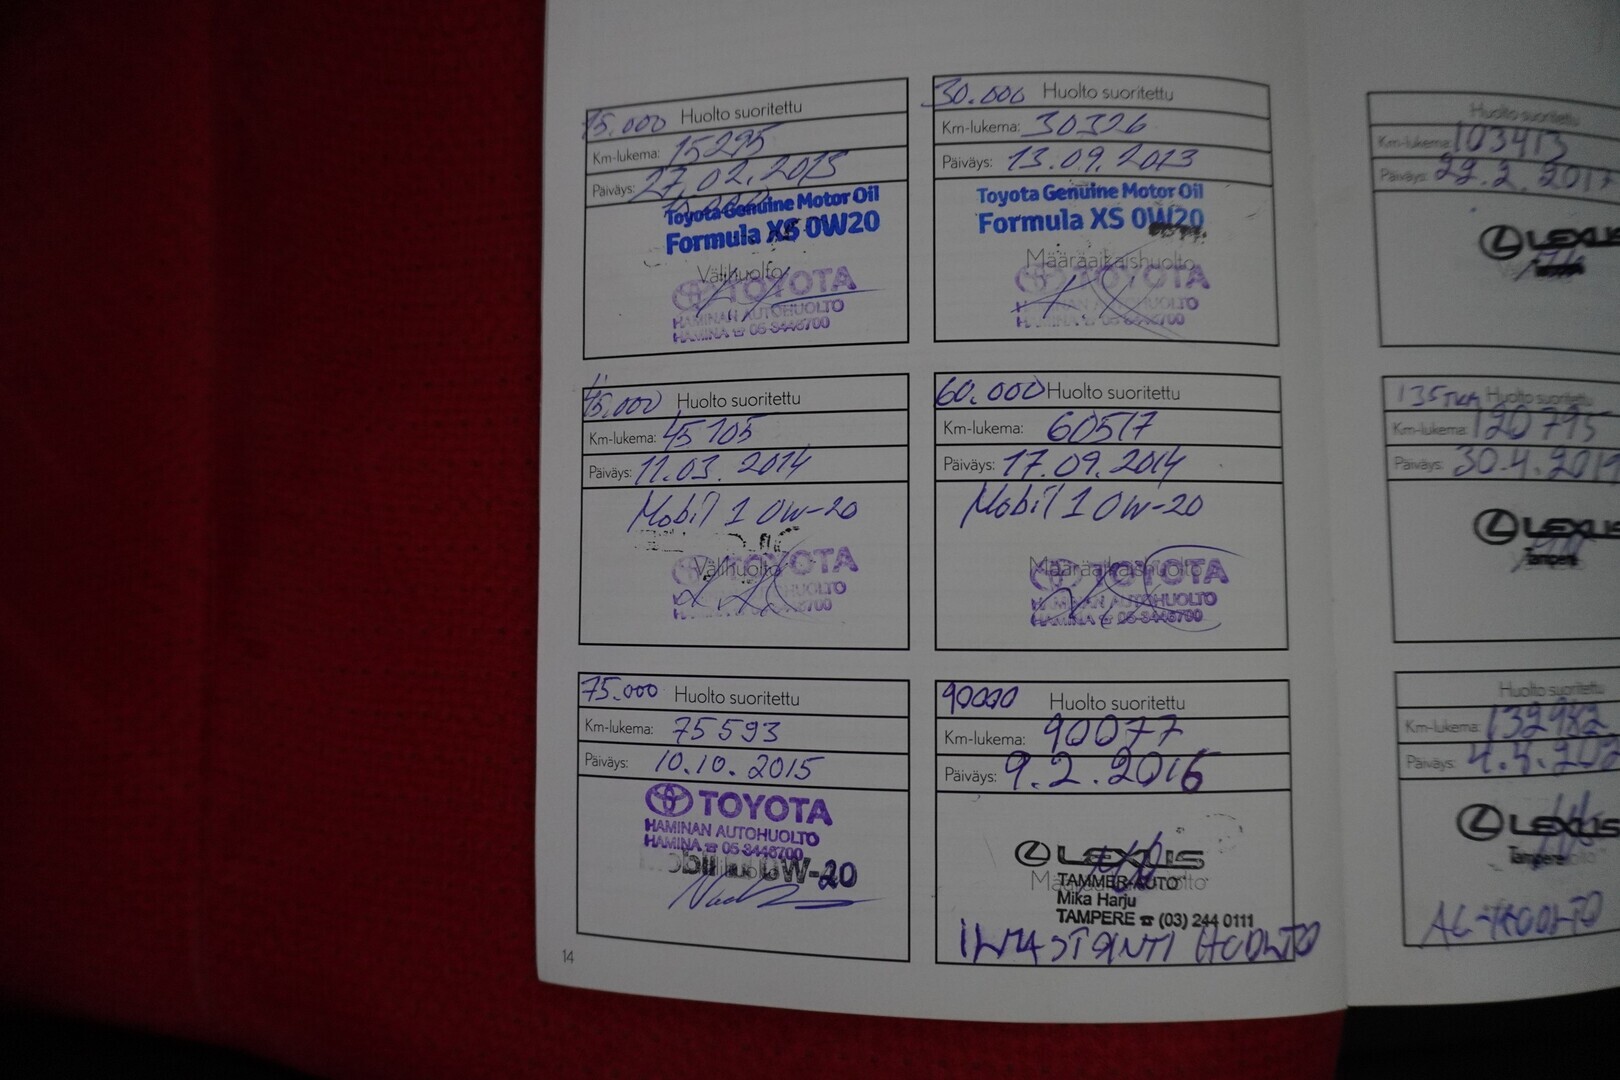 15.000 Huolto suoritettu
Km-lukema: 15295
Päiväys: 27.02.2013
Toyota Genuine Motor Oil
Formula XS 0W20
Välihuolto
TOYOTA
HAMINAN AUTOHUOLTO
HAMINA ☎ 05-3446700
30.000 Huolto suoritettu
Km-lukema: 30326
Päiväys: 13.09.2013
Toyota Genuine Motor Oil
Formula XS 0W20
Määräaikaishuolto
TOYOTA
HAMINAN AUTOHUOLTO
HAMINA ☎ 05-3446700
45.000 Huolto suoritettu
Km-lukema: 45105
Päiväys: 11.03.2014
Mobil 1 0W-20
Välihuolto
TOYOTA
HAMINAN AUTOHUOLTO
HAMINA ☎ 05-3446700
60.000 Huolto suoritettu
Km-lukema: 60517
Päiväys: 17.09.2014
Mobil 1 0W-20
Määräaikaishuolto
TOYOTA
HAMINAN AUTOHUOLTO
HAMINA ☎ 05-3446700
75.000 Huolto suoritettu
Km-lukema: 75593
Päiväys: 10.10.2015
TOYOTA
HAMINAN AUTOHUOLTO
HAMINA ☎ 05-3446700
0W-20
90000 Huolto suoritettu
Km-lukema: 90077
Päiväys: 9.2.2016
LEXUS
TAMMER-AUTO
Mika Harju
TAMPERE ☎ (03) 244 0111
ILMASTOINTI HUOLTO
14
Huolto suoritettu
Km-lukema: 103413
Päiväys: 22.2.2017
LEXUS
Tampere
135TKM Huolto suoritettu
Km-lukema: 120795
Päiväys: 30.4.201
LEXUS
Tampere
Huolto suoritettu
Km-lukema: 132982
Päiväys:
LEXUS
Tampere
AC-HUOLTO